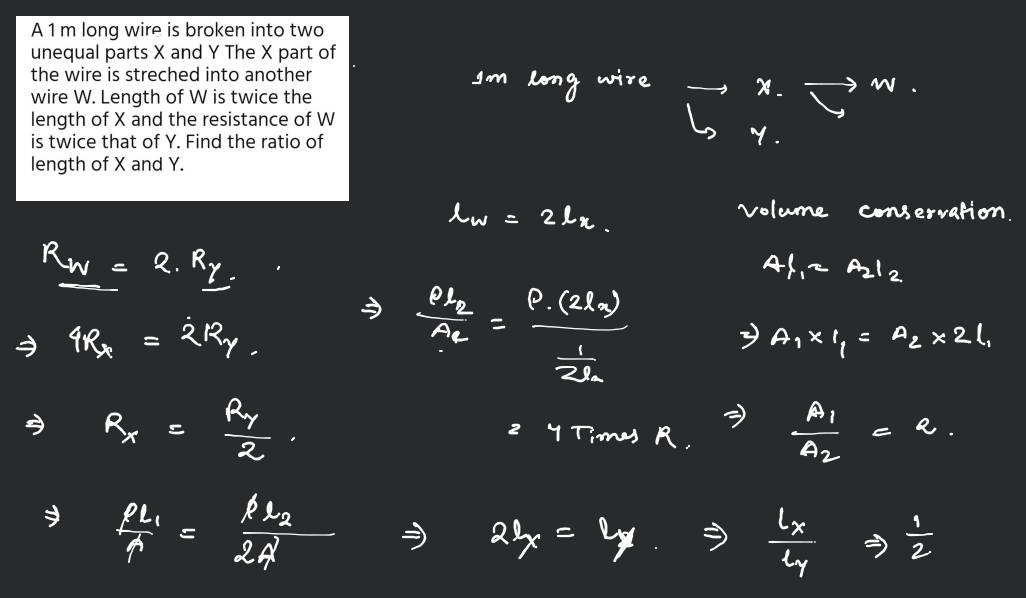 A 1 m long wire is broken into two
unequal parts X and Y The X part of
the wire is streched into another
wire W. Length of W is twice the
length of X and the resistance of W
is twice that of Y. Find the ratio of
length of X and Y.
1m long wire → X. → W.
↳ Y.
lw = 2lx.
volume conservation.
Rw = 2. Ry.
A1l1 = A2l2
⇒ ρl2/A2 = ρ.(2lx)/(1/2la)
⇒ 4Rx = 2Ry.
⇒ A1 × l1 = A2 × 2l1
⇒ Rx = Ry/2.
= 4 Times R.
⇒ A1/A2 = 2.
⇒ ρL1/A = ρl2/2A ⇒ 2lx = ly. ⇒ lx/ly ⇒ 1/2